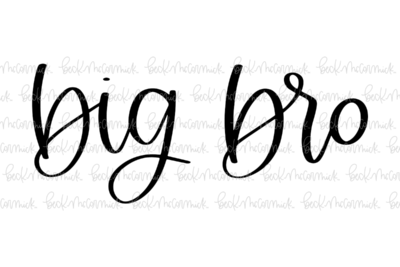 big bro